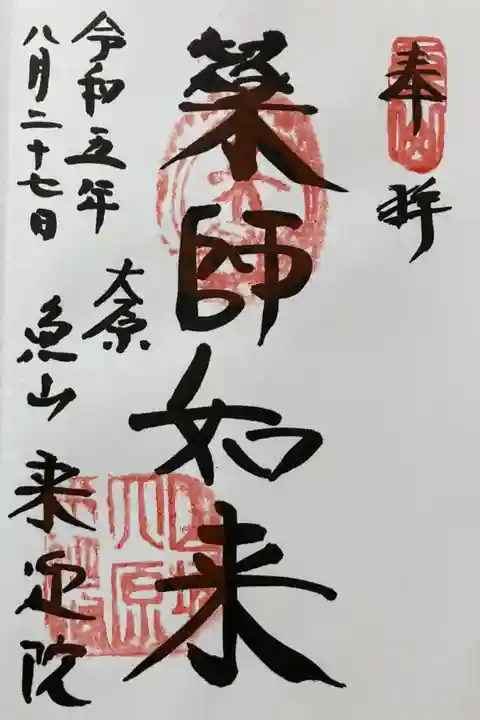 奉拝
薬師如来
大原
魚山 来迎院
令和五年
八月二十七日
大原